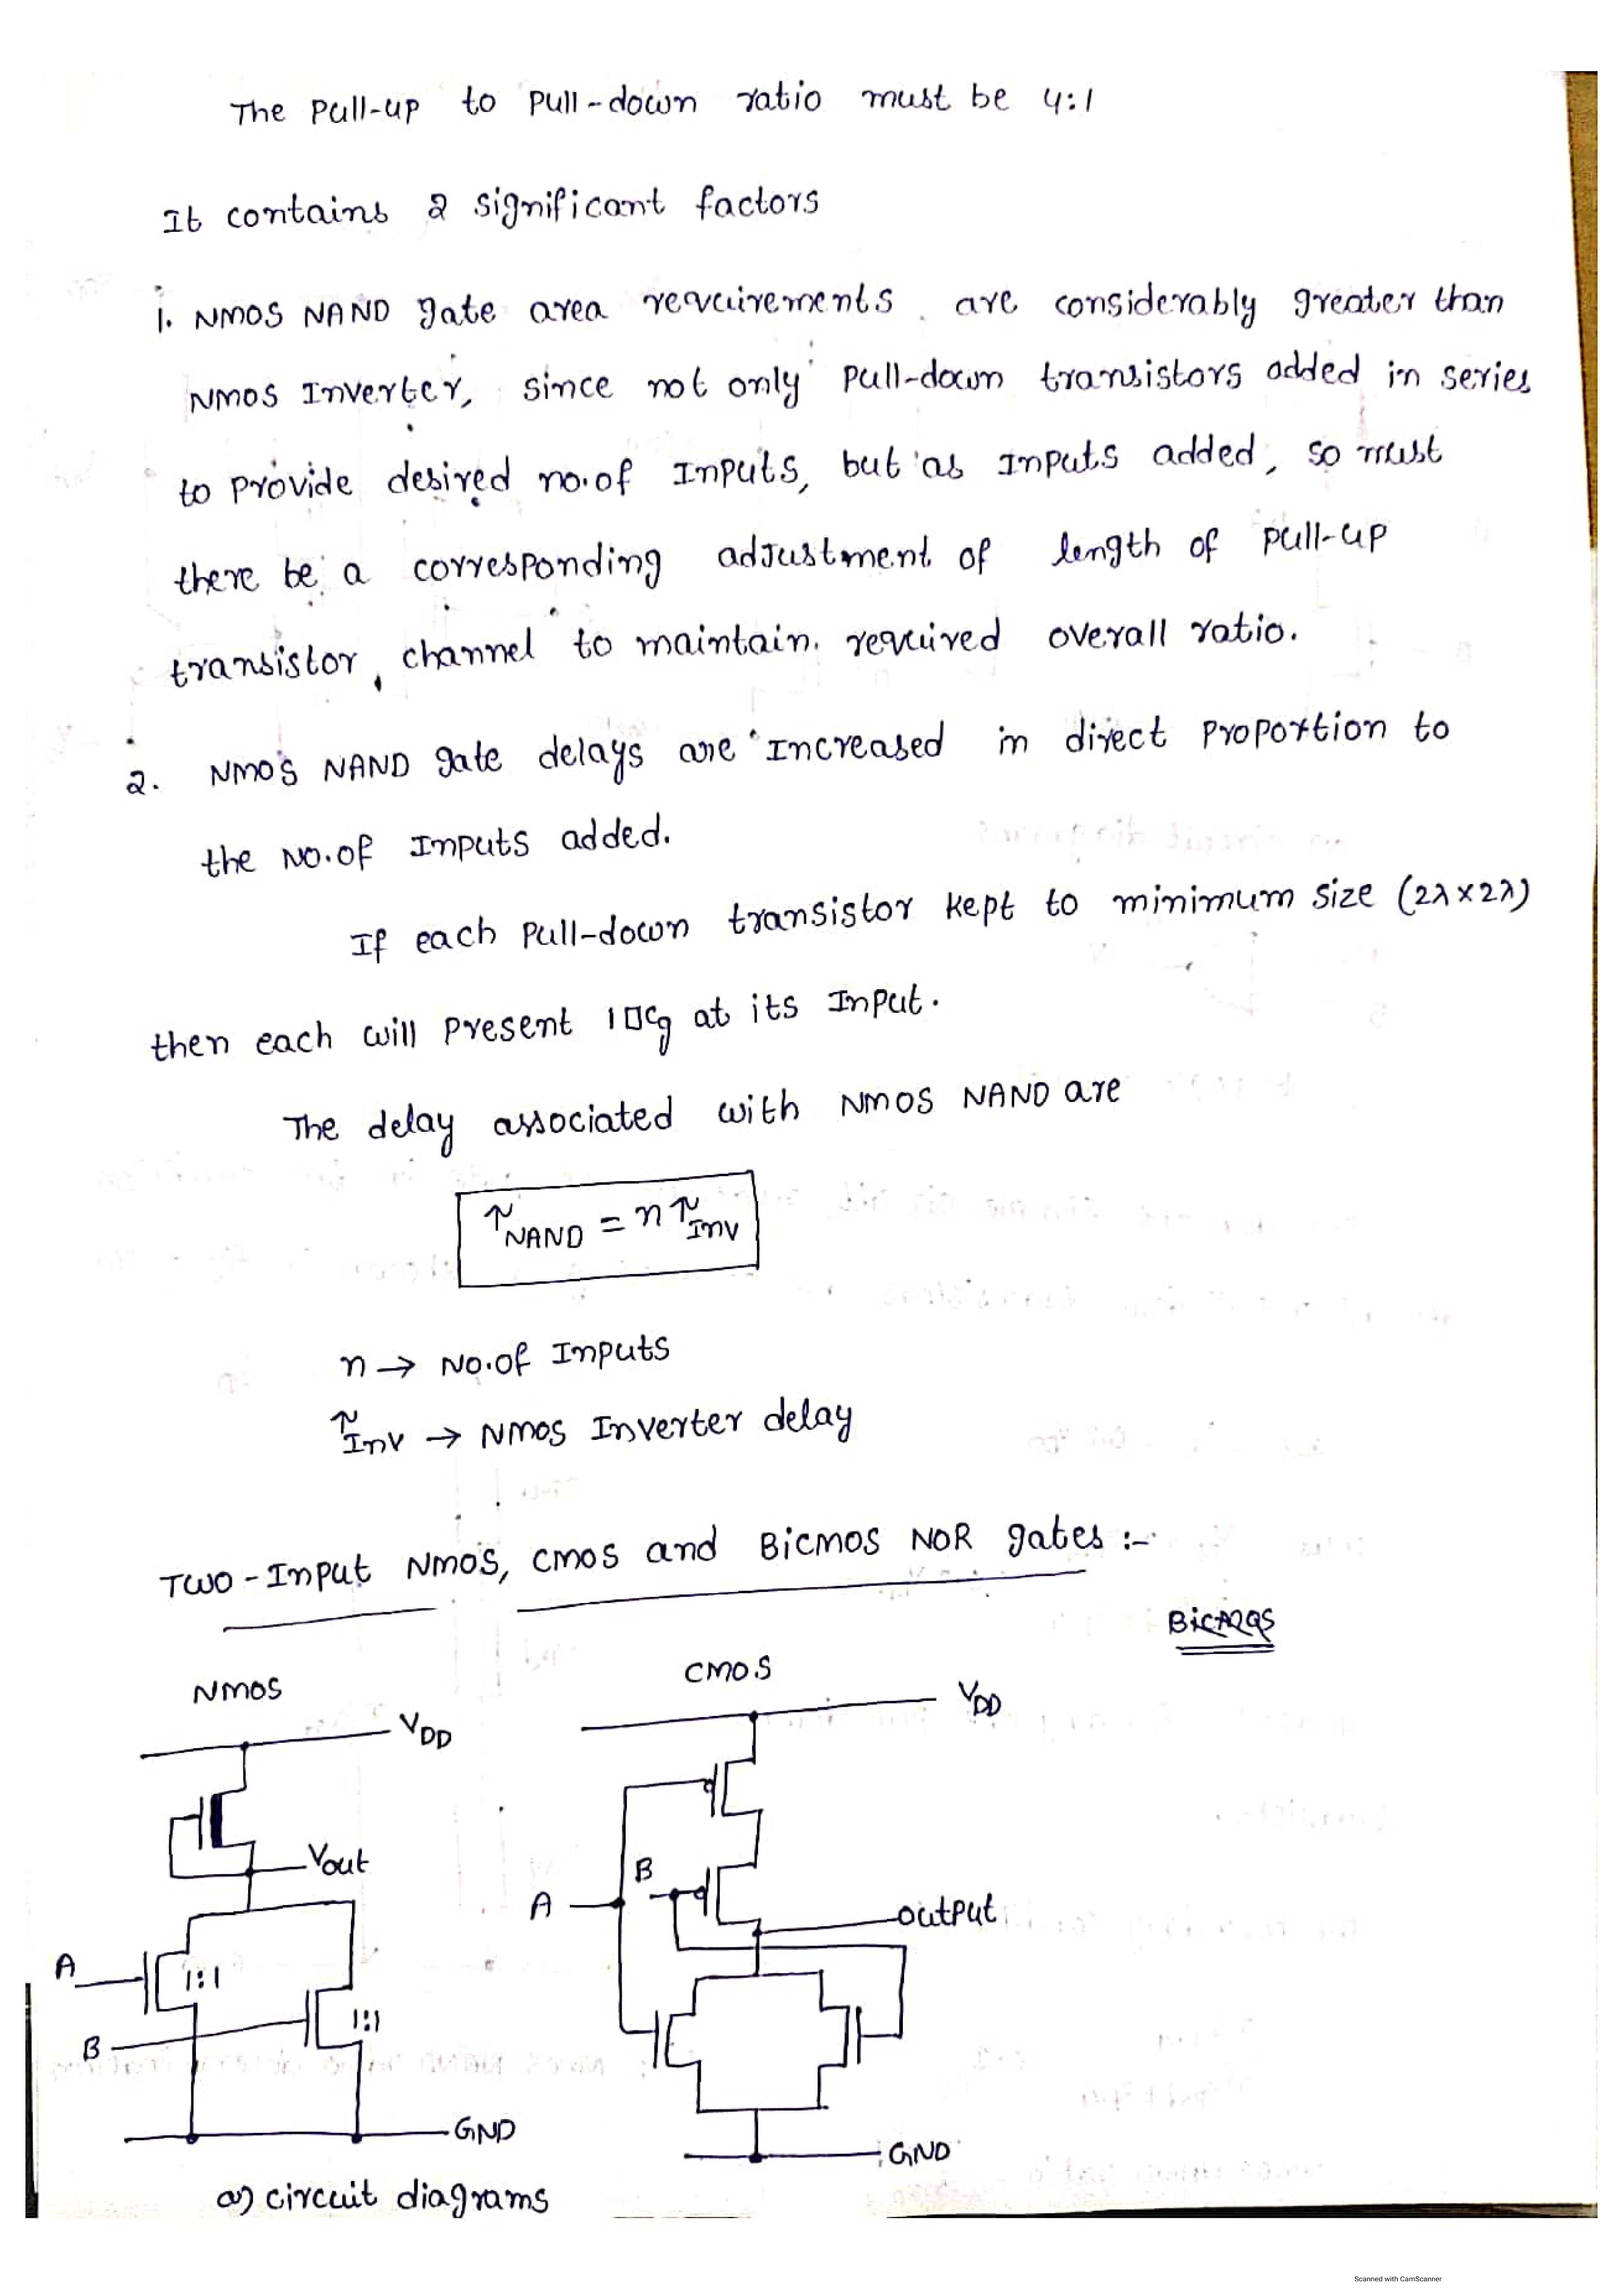 The Pull-up to Pull-down ratio must be 4:1
It contains 2 significant factors
1. NMOS NAND gate area requirements are considerably greater than
NMOS Inverter, since not only Pull-down transistors added in series
to provide desired no.of Inputs, but as Inputs added, so must
there be a corresponding adjustment of length of pull-up
transistor, channel to maintain. required overall ratio.
2. NMOS NAND gate delays are Increased in direct Proportion to
the NO.OF Inputs added.
If each Pull-down transistor kept to minimum size (2λ×2λ)
then each will present 1□Cg at its Input.
The delay associated with NMOS NAND are
τNAND = n τInv
n → No.of Inputs
τInv → NMOS Inverter delay
Two-Input NMOS, CMOS and BiCMOS NOR gates :-
NMOS CMOS
VDD VDD
Vout
B
A output
A 1:1
B 1:1
GND GND
a) circuit diagrams
Scanned with CamScanner